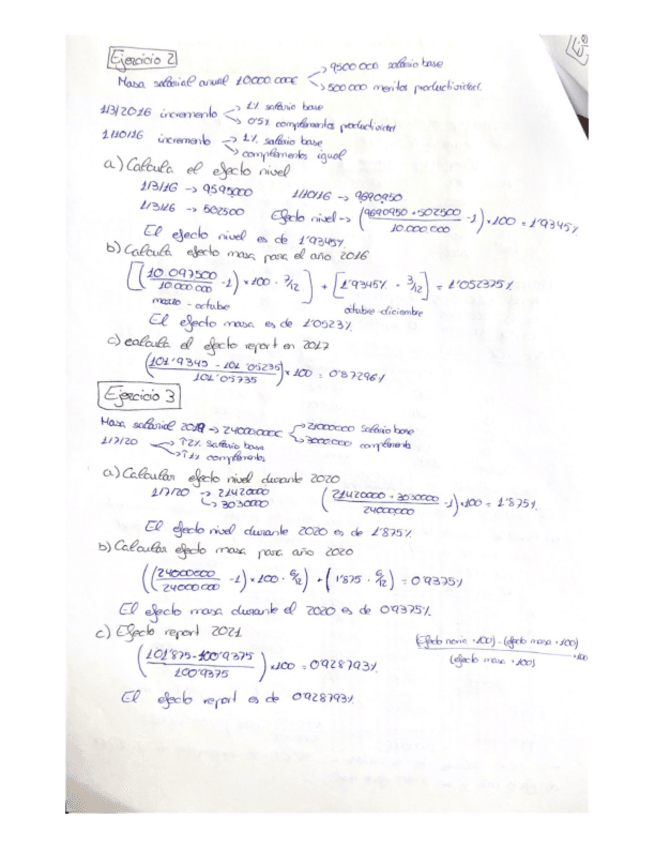 Ejercicio 2
→ 9500 000 salario base
Masa salarial anual 10000.000€
→ 500 000 meritos productividad.
→ 1% salario base
1/3/2016 incremento
→ 0'5% complementos productividad
1/10/16 incremento → 1% salario base
→ complementos igual
a) Calcula el efecto nivel
1/3/16 → 9595000 1/10/16 → 9690950
1/3/16 → 502500 Efecto nivel → (9690950 + 502500 / 10.000.000 - 1) × 100 = 1'9345%
El efecto nivel es de 1'9345%
b) Calcula efecto masa para el año 2016
[[(10.097500 / 10.000.000 - 1) × 100 · 7/12] + [1'9345% · 3/12] = 1'052375%
marzo - octubre octubre-diciembre
El efecto masa es de 1'0523%
c) calcula el efecto report en 2017
(101'9345 - 101'05235 / 101'05735) × 100 = 0'87296%
Ejercicio 3
Masa salarial 2019 → 24000.000€ → 21000000 Salario base
→ 3000000 complemento
1/7/20 → ↑2% Salario base
→ ↑1% complementos
a) Calcular efecto nivel durante 2020
1/7/20 → 21420000
→ 3030000
(21420000 + 3030000 / 24000000 - 1) × 100 = 1'875%
El efecto nivel durante 2020 es de 1'875%
b) Calcular efecto masa para año 2020
((24000000 / 24000000 - 1) × 100 · 6/12) + (1'875 · 6/12) = 0'9375%
El efecto masa durante el 2020 es de 0'9375%
c) Efecto report 2021
(101'875 - 100'9375 / 100'9375) × 100 = 0'928793%
(efecto masa + 100) ×100
El efecto report es de 0'928793%